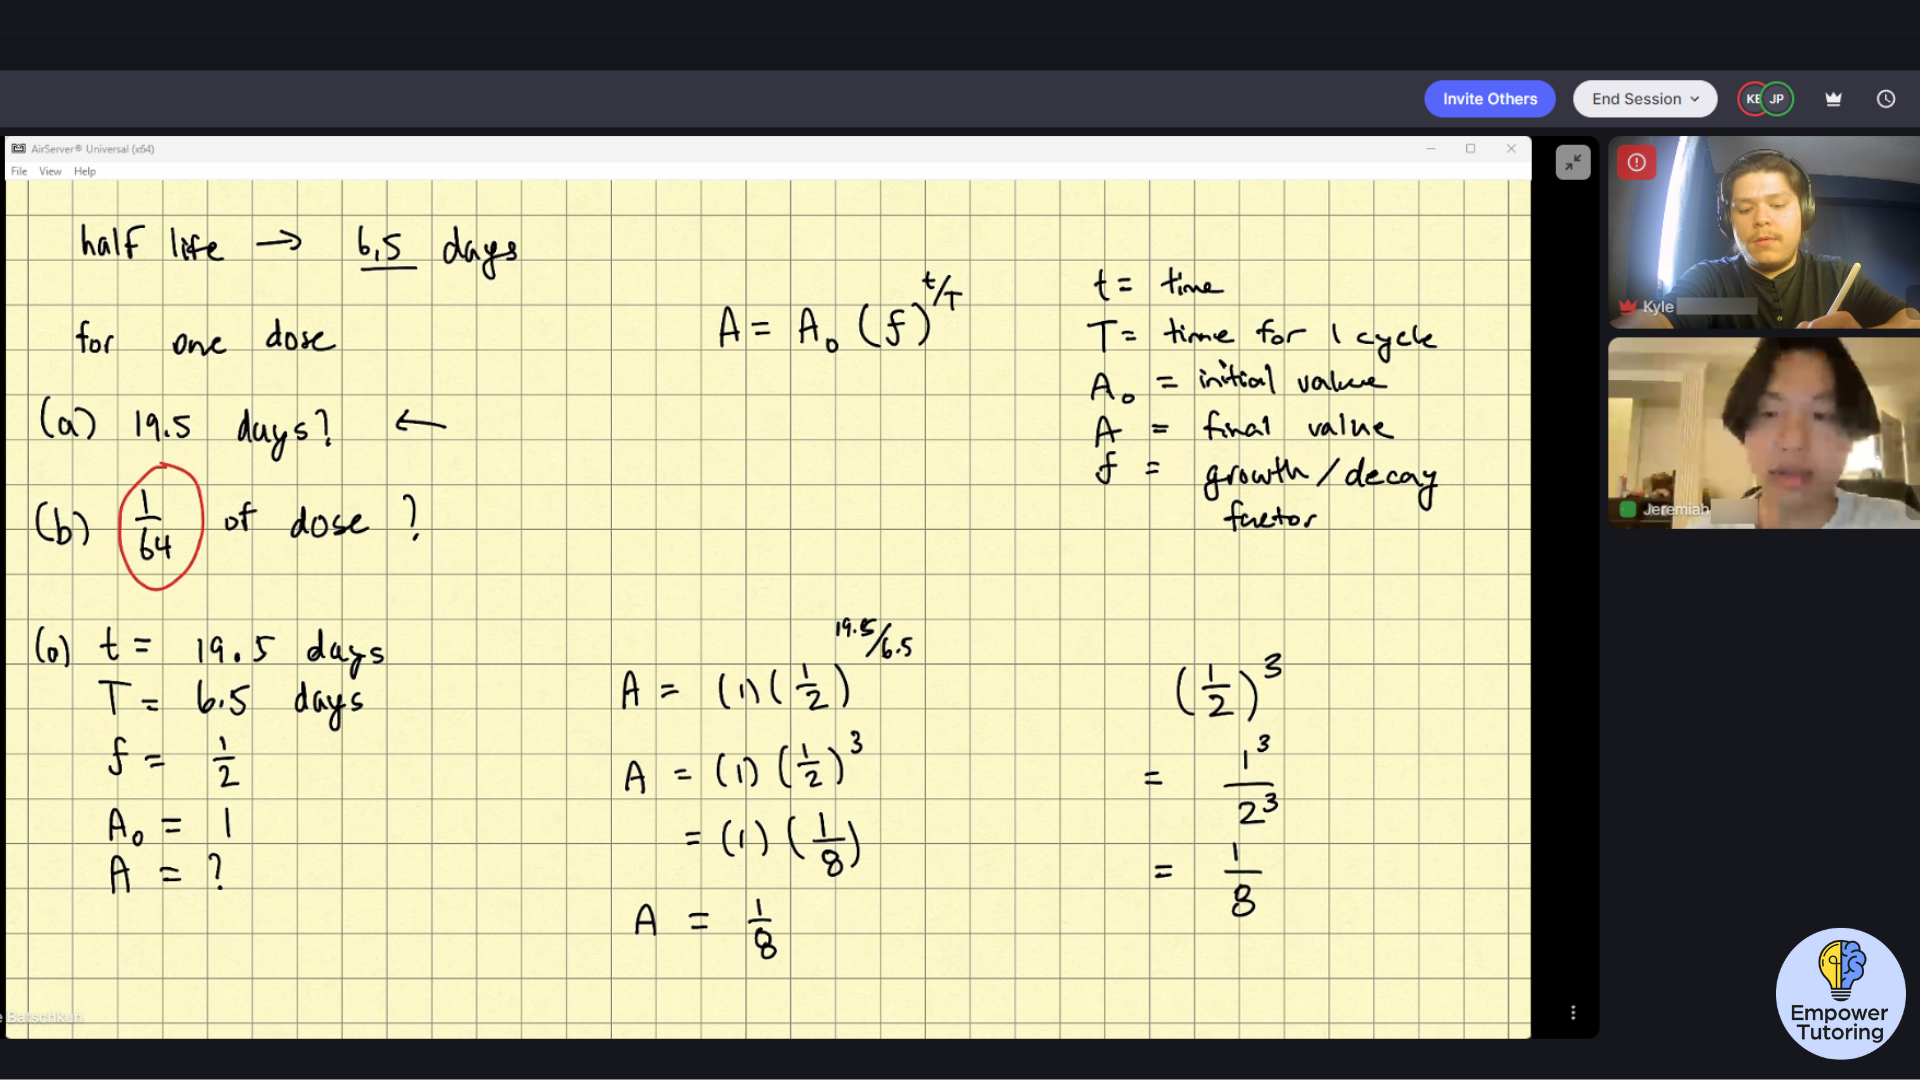 Invite Others
End Session
KE JP
AirServer® Universal (x64)
File View Help
half life → 6.5 days
for one dose
(a) 19.5 days? ←
(b) 1/64 of dose ?
A = A₀ (f)^t/T
t = time
T = time for 1 cycle
A₀ = initial value
A = final value
f = growth/decay
factor
(a) t = 19.5 days
T = 6.5 days
f = 1/2
A₀ = 1
A = ?
A = (1)(1/2)^19.5/6.5
A = (1)(1/2)^3
= (1)(1/8)
A = 1/8
(1/2)^3
= 1^3/2^3
= 1/8
Kyle
Jeremiah
Empower
Tutoring